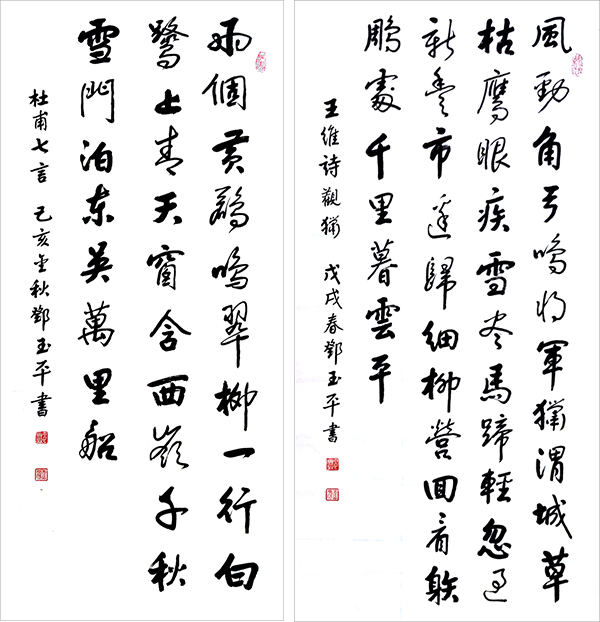 風勁角弓鳴将軍獵渭城草
枯鷹眼疾雪尽馬蹄輕忽過
新豐市還歸細柳營回看射
鵰處千里暮雲平
王維詩觀獵 戊戌春鄧玉平書
兩個黃鸝鳴翠柳一行白
鷺上青天窗含西嶺千秋
雪門泊東吳萬里船
杜甫七言 己亥金秋鄧玉平書